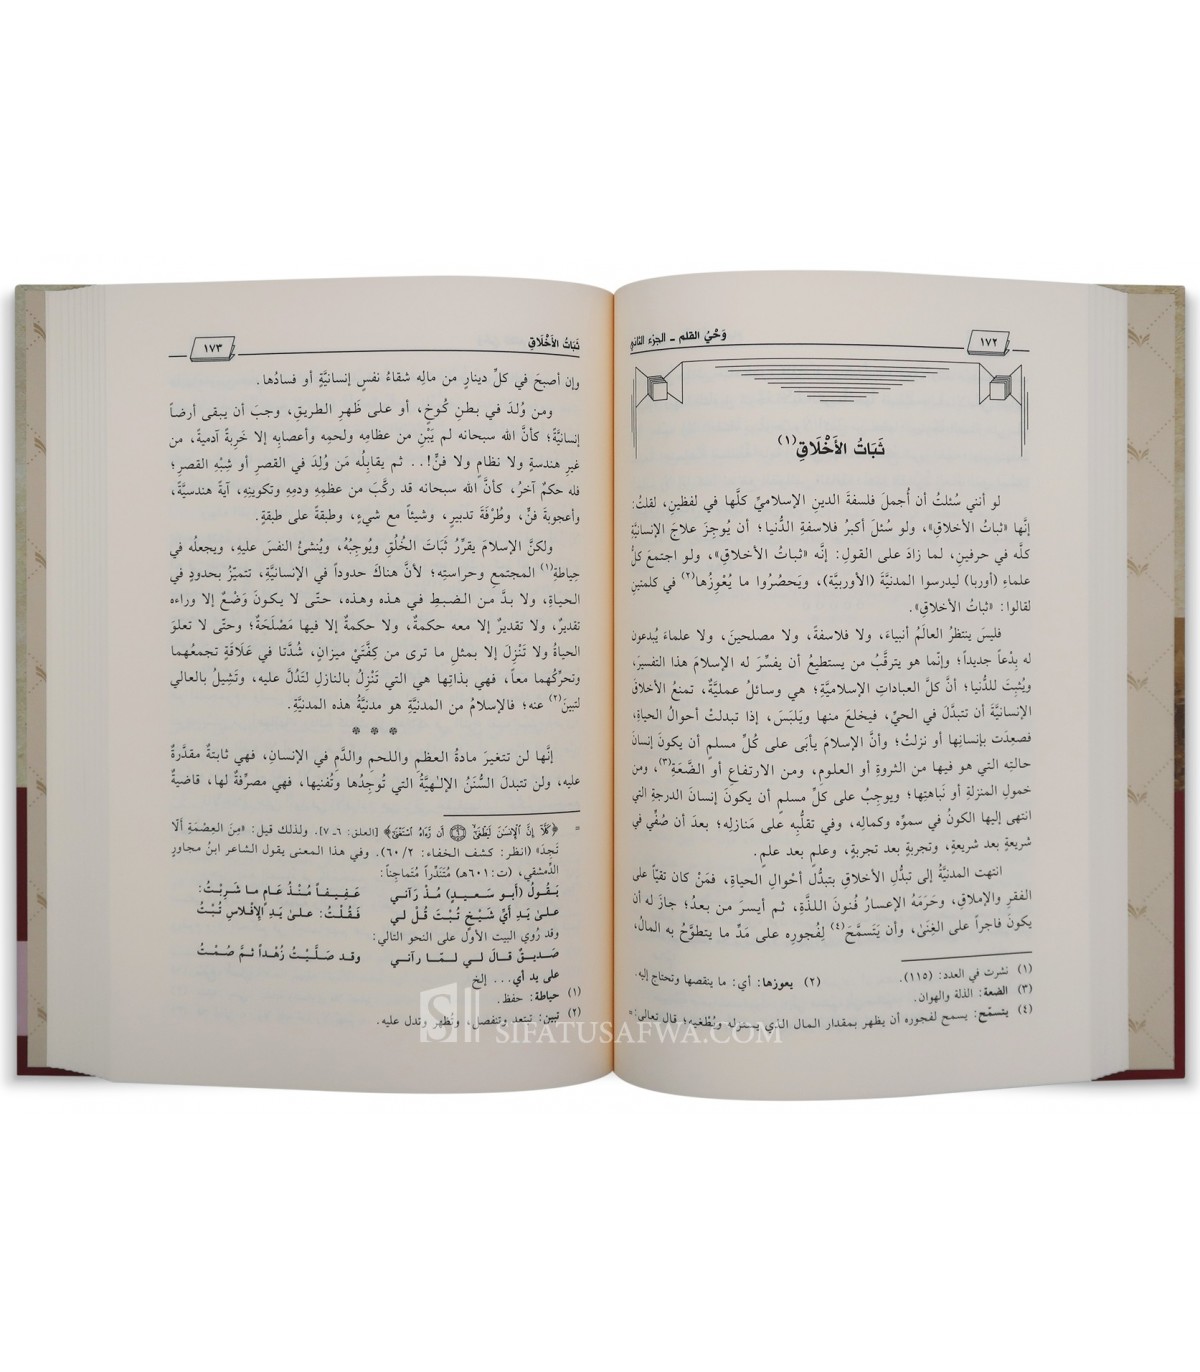 ١٧٢
وَحْيُ القلم ـ الجزء الثاني
ثَبَاتُ الأَخْلَاقِ(١)
لو أنني سُئلتُ أن أُجملَ فلسفةَ الدينِ الإسلاميِّ كلَّها في لفظينِ، لقلتُ:
إنَّها «ثباتُ الأخلاقِ»، ولو سُئلَ أكبرُ فلاسفةِ الدُّنيا؛ أن يُوجِزَ علاجَ الإنسانيَّةِ
كلَّه في حرفينِ، لما زادَ على القولِ: إنَّه «ثباتُ الأخلاقِ»، ولو اجتمعَ كلُّ
علماءِ (أوربا) ليدرسوا المدنيَّةَ (الأوربيَّة)، ويَحصُروا ما يُعْوِزُها(٢) في كلمتينِ
لقالوا: «ثباتُ الأخلاقِ».
فليسَ ينتظرُ العالَمُ أنبياءَ، ولا فلاسفةً، ولا مصلحينَ، ولا علماءَ يُبدعون
له بِدْعاً جديداً؛ وإنَّما هو يترقَّبُ من يستطيعُ أن يفسِّرَ له الإسلامَ هذا التفسيرَ،
ويُثبِتَ للدُّنيا؛ أنَّ كلَّ العباداتِ الإسلاميَّةِ؛ هي وسائلُ عمليَّةٌ، تمنعُ الأخلاقَ
الإنسانيَّةَ أن تتبدَّلَ في الحيِّ، فيخلعَ منها ويَلبَسَ، إذا تبدلتْ أحوالُ الحياةِ،
فصعِدَت بإنسانِها أو نزلتْ؛ وأنَّ الإسلامَ يأبَى على كُلِّ مسلمٍ أن يكونَ إنسانَ
حالتِه التي هو فيها من الثروةِ أو العلومِ، ومن الارتفاعِ أو الضَّعَةِ(٣)، ومن
خمولِ المنزلةِ أو نَباهتِها؛ ويوجِبُ على كلِّ مسلمٍ أن يكونَ إنسانَ الدرجةِ التي
انتهى إليها الكونُ في سموِّه وكمالِه، وفي تقلُّبِه على مَنازلِه؛ بعدَ أن صُفِّي في
شريعةٍ بعد شريعةٍ، وتجربةٍ بعد تجربةٍ، وعلمٍ بعد علمٍ.
انتهت المدنيَّةُ إلى تبدُّلِ الأخلاقِ بتبدُّلِ أحوالِ الحياةِ، فمَنْ كان تقيّاً على
الفقرِ والإملاقِ، وحَرَمَهُ الإعسارُ فُنونَ اللذَّةِ، ثم أيسرَ من بعدُ؛ جازَ له أن
يكونَ فاجراً على الغِنَىٰ، وأن يَتَسمَّحَ(٤) لِفُجورِه على مَدِّ ما يتطوَّحُ به المالُ،
(١) نشرت في العدد: (١١٥).
(٢) يعوزها: أي: ما ينقصها وتحتاج إليه.
(٣) الضعة: الذلة والهوان.
(٤) يتسمّح: يسمح لفجوره أن يظهر بمقدار المال الذي يملكه ويُطغيه؛ قال تعالى: =
ثَبَاتُ الأَخْلَاقِ
١٧٣
وإن أصبحَ في كلِّ دينارٍ من مالِه شقاءُ نفسٍ إنسانيَّةٍ أو فسادُها.
ومن وُلدَ في بطنِ كُوخٍ، أو على ظَهرِ الطريقِ، وجبَ أن يبقى أرضاً
إنسانيَّةً؛ كأنَّ الله سبحانه لم يَبْنِ من عظامِه ولحمِه وأعصابِه إلا خَرِبةً آدميةً، من
غيرِ هندسةٍ ولا نظامٍ ولا فنٍّ!.. ثم يقابِلُه مَن وُلِدَ في القصرِ أو شِبْهِ القصرِ؛
فله حكمٌ آخرُ، كأنَّ الله سبحانه قد ركَّبَ من عظمِه ودمِه وتكوينِه، آيةً هندسيَّةً،
وأعجوبةَ فنٍّ، وطُرْفَةَ تدبيرٍ، وشيئاً مع شيءٍ، وطبقةً على طبقةٍ.
ولكنَّ الإسلامَ يقرِّرُ ثَبَاتَ الخُلُقِ ويُوجِبُهُ، ويُنشئُ النفسَ عليهِ، ويجعلُه في
حِياطةِ(١) المجتمعِ وحراستِه؛ لأنَّ هناكَ حدوداً في الإنسانيَّةِ، تتميّزُ بحدودٍ في
الحياةِ، ولا بدَّ من الضبطِ في هذه وهذه، حتّى لا يكونَ وَضْعٌ إلا وراءه
تقديرٌ، ولا تقديرٌ إلا معه حكمةٌ، ولا حكمةٌ إلا فيها مَصْلَحَةٌ؛ وحتّى لا تعلوَ
الحياةُ ولا تَنْزِلَ إلا بمثلِ ما ترى من كِفَّتَيْ ميزانٍ، شُدَّتا في عَلَاقةٍ تجمعُهما
وتحرِّكُهما معاً، فهي بذاتِها هي التي تَنْزِلُ بالنازلِ لتَدُلَّ عليه، وتَشِيلُ بالعالي
لتبينَ(٢) عنه؛ فالإسلامُ من المدنيَّةِ هو مدنيَّةُ هذه المدنيَّةِ.
* * *
إنَّها لن تتغيرَ مادةُ العظمِ واللحمِ والدَّمِ في الإنسانِ، فهي ثابتةٌ مقدَّرةٌ
عليه، ولن تتبدلَ السُّنَنُ الإلـٰهيَّةُ التي تُوجِدُها وتُفنيها، فهي مصرِّفةٌ لها، قاضيةٌ
= ﴿كَلَّآ إِنَّ ٱلْإِنسَٰنَ لَيَطْغَىٰٓ ۝٦ أَن رَّءَاهُ ٱسْتَغْنَىٰٓ﴾ [العلق: ٦ـ٧]. ولذلك قيل: «مِنَ العِصْمَةِ أَلَّا
تَجِدَ» (انظر: كشف الخفاء: ٢/ ٦٠). وفي هذا المعنى يقول الشاعر ابنُ مجاورٍ
الدِّمشقي، (ت:٦٠١هـ) مُتَنَدِّراً مُتَماجِناً:
يَقُولُ (أبو سَعيدٍ) مُذْ رَآني عَفِيفاً مُنْذُ عَامٍ ما شَرِبْتُ:
عَلىٰ يَدِ أَيِّ شَيْخٍ تُبْتَ قُلْ لي فَقُلْتُ: عَلىٰ يَدِ الإِفْلاسِ تُبْتُ
وقد رُوي البيت الأول على النحو التالي:
صَديقٌ قالَ لي لمّا رآني وقد صَلَّيْتُ زُهْداً ثمَّ صُمْتُ
على يد أي... إلخ
(١) حياطة: حفظ.
(٢) تبين: تبتعد وتنفصل، وتُظهر وتدل عليه.
SIFATUSAFWA.COM